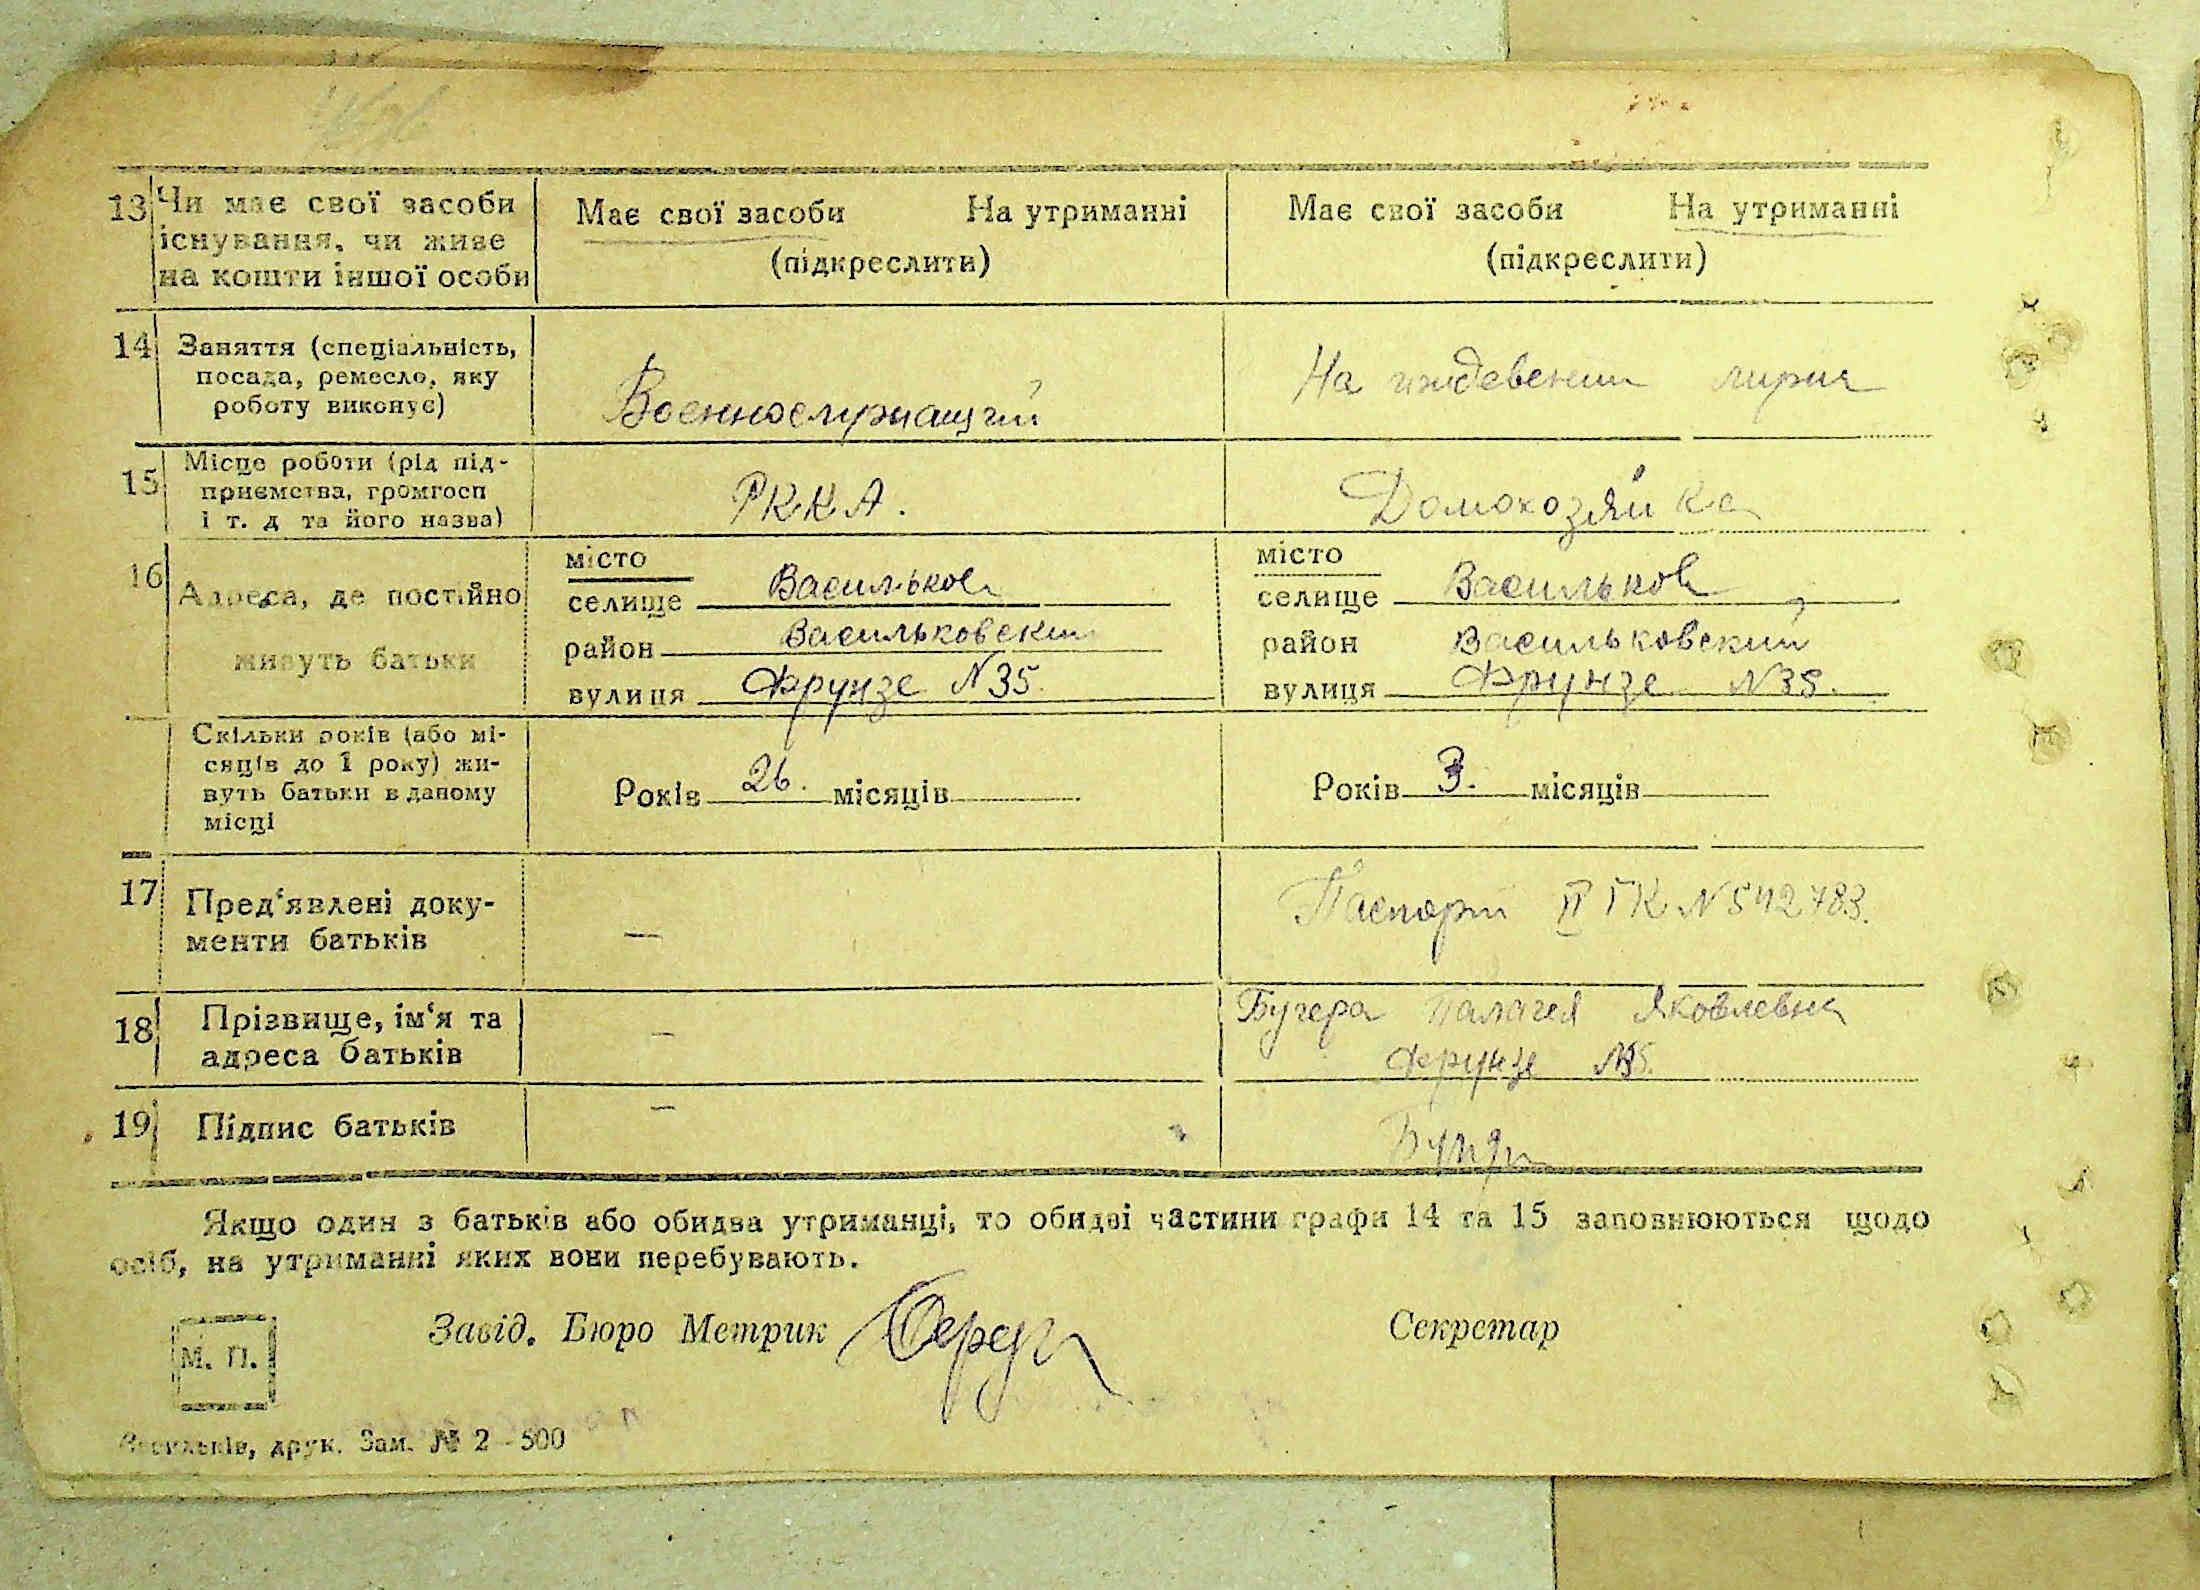 13 Чи має свої засоби Має свої засоби На утриманні Має свої засоби На утриманні
існування, чи живе
на кошти іншої особи (підкреслити) (підкреслити)
14 Заняття (спеціальність,
посада, ремесло, яку
роботу виконує) Военнослужащий На иждевении мужа
15 Місце роботи (рід під-
приємства, громгосп
і т. д та його назва) РККА. Домохозяйка
16 Адреса, де постійно
живуть батьки
місто
селище Васильков
район Васильковский
вулиця Фрунзе N35.
місто
селище Васильков
район Васильковский
вулиця Фрунзе N35.
Скільки років (або мі-
сяців до 1 року) жи-
вуть батьки в даному
місці
Років 26. місяців Років 3. місяців
17 Пред‘явлені доку-
менти батьків — Паспорт ІІ ГК N 542783.
18 Прізвище, ім‘я та
адреса батьків — Бугера Палагея Яковлевна
Фрунзе N35.
19 Підпис батьків —
Якщо один з батьків або обидва утриманці, то обидві частини графи 14 та 15 заповнюються щодо
осіб, на утриманні яких вони перебувають.
М. П.
Завід. Бюро Метрик Секретар
Васильків, друк. Зам. № 2 - 500